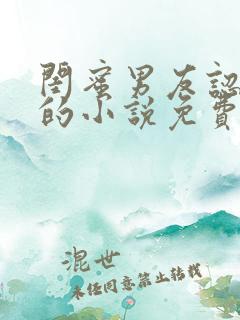 閨蜜男友認
的小説免費
混世
未經同意禁止轉載